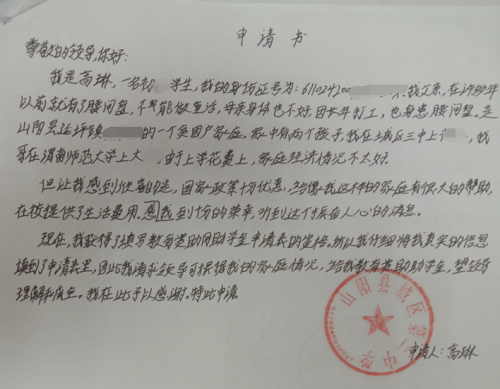 申请书
尊敬的领导,你好:
我是高琳,一名初 学生,我的身份证号为:611024200 ,我父亲,在许多年
以前就有了腰间盘,不能做重活,母亲身体也不好,因长年打工,也身患腰间盘,是
山阳县 镇 的一个贫困户家庭。家中有两个孩子,我在城区三中上 ,我
哥在渭南师范大学上大 ,由于上学花费上,家庭经济情况不太好。
但让我感到欣喜的是,国家政策好优惠,给像我这样的家庭有很大的帮助,
在校提供了生活费用,感到 的荣幸,听到这个振奋人心的消息。
现在,我获得了填写教育资助网助学金申请表的 。所以我仔细将我真实的信息
填到了申请表里,因此我请求领导可根据我的家庭情况,给我教育资助助学金,望领导
理解和成全。我在此予以感谢。特此申请
山阳县城区第 中学
申请人:高琳